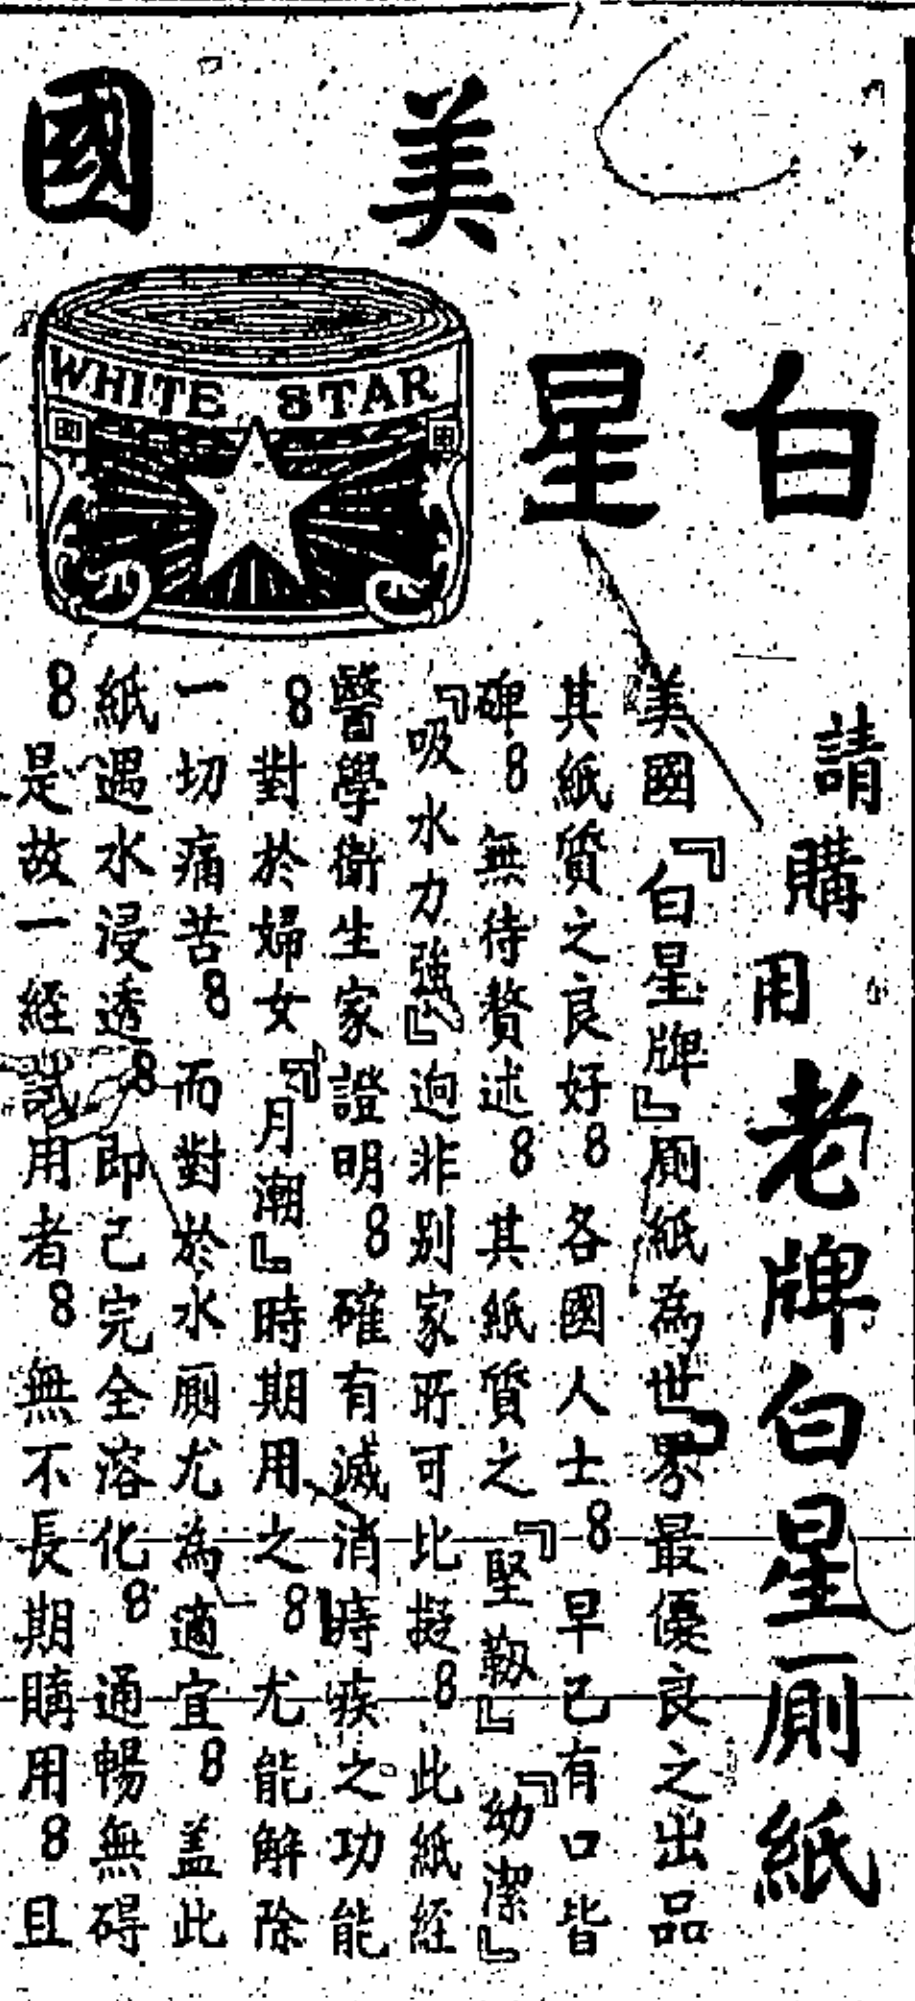 美國
白星
WHITE STAR
請購用老牌白星厠紙
美國『白星牌』厠紙為世界最優良之出品
其紙質之良好8各國人士8早己有口皆
碑8無待贅述8其紙質之『堅韌』『幼潔』
『吸水力強』逈非別家所可比擬8此紙経
醫學衛生家證明8確有滅消時疾之功能
8對於婦女『月潮』時期用之8尤能解除
一切痛苦8而對於水厠尤為適宜8盖此
紙遇水浸透8即己完全溶化8通暢無碍
8是故一経試用者8無不長期購用8且